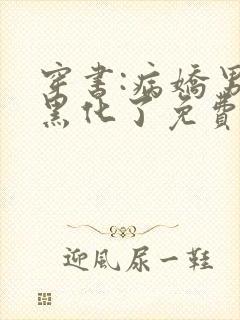 穿书:病娇男
黑化了免費
迎風尿一鞋